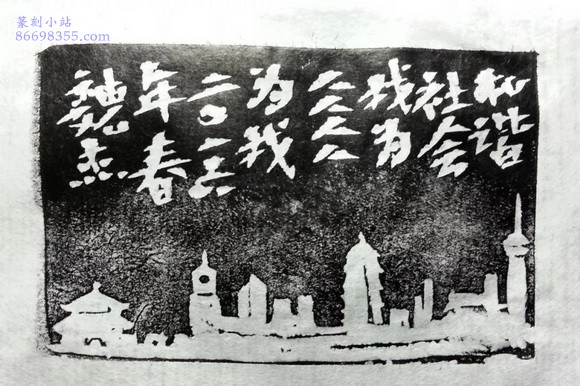 篆刻小站
86698355.com
和谐
社会
我为
人人人人
为我
二〇一六
年春
杰